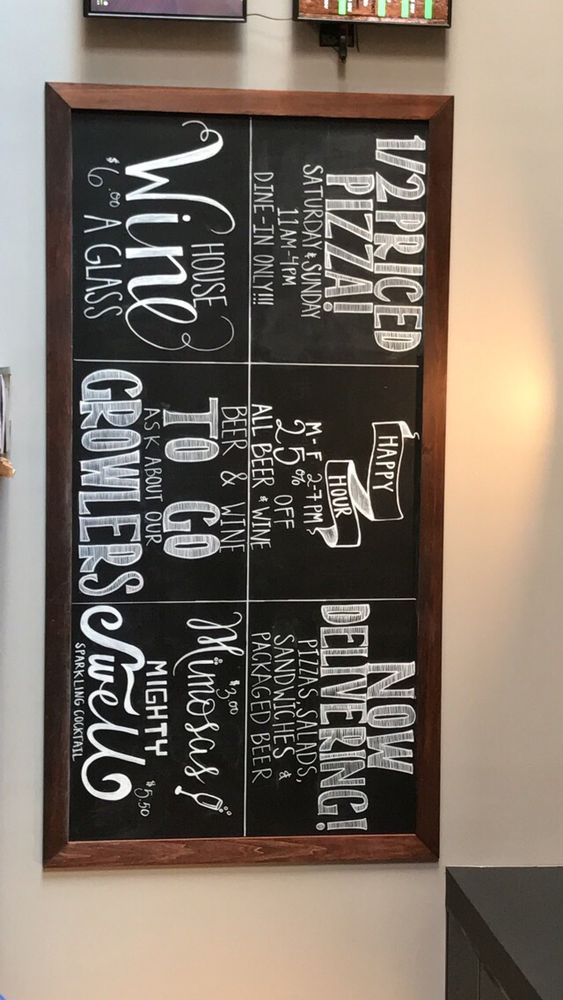 1/2 PRICED
PIZZA!
SATURDAY & SUNDAY
11AM-4PM
DINE-IN ONLY!!!
HAPPY
HOUR
M-F 2-7PM
25% OFF
ALL BEER & WINE
NOW
DELIVERNG!
PIZZAS, SALADS,
SANDWICHES &
PACKAGED BEER
HOUSE
Wine
$6.00 A GLASS
BEER & WINE
TO GO
ASK ABOUT OUR
GROWLERS
Mimosas
$3.00
MIGHTY
Swell $5.50
SPARKLING COCKTAIL